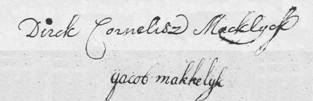 Dirck Cornelisz Macklyck
yacob makkelyk